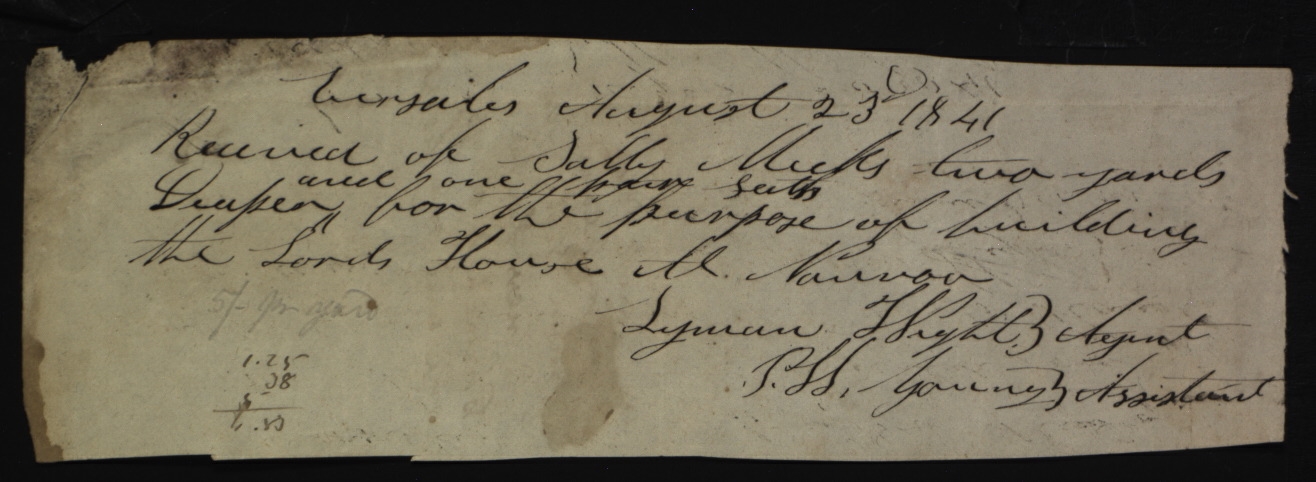 Versailes August 23 1841
Received of Sally Meeks two yards
and one pair Socks
Diaper for the purpose of building
the Lords House At. Nauvoo
5/- pr yard
Lyman Wight } Agent
P.H. Young } Assistant
1.25
38